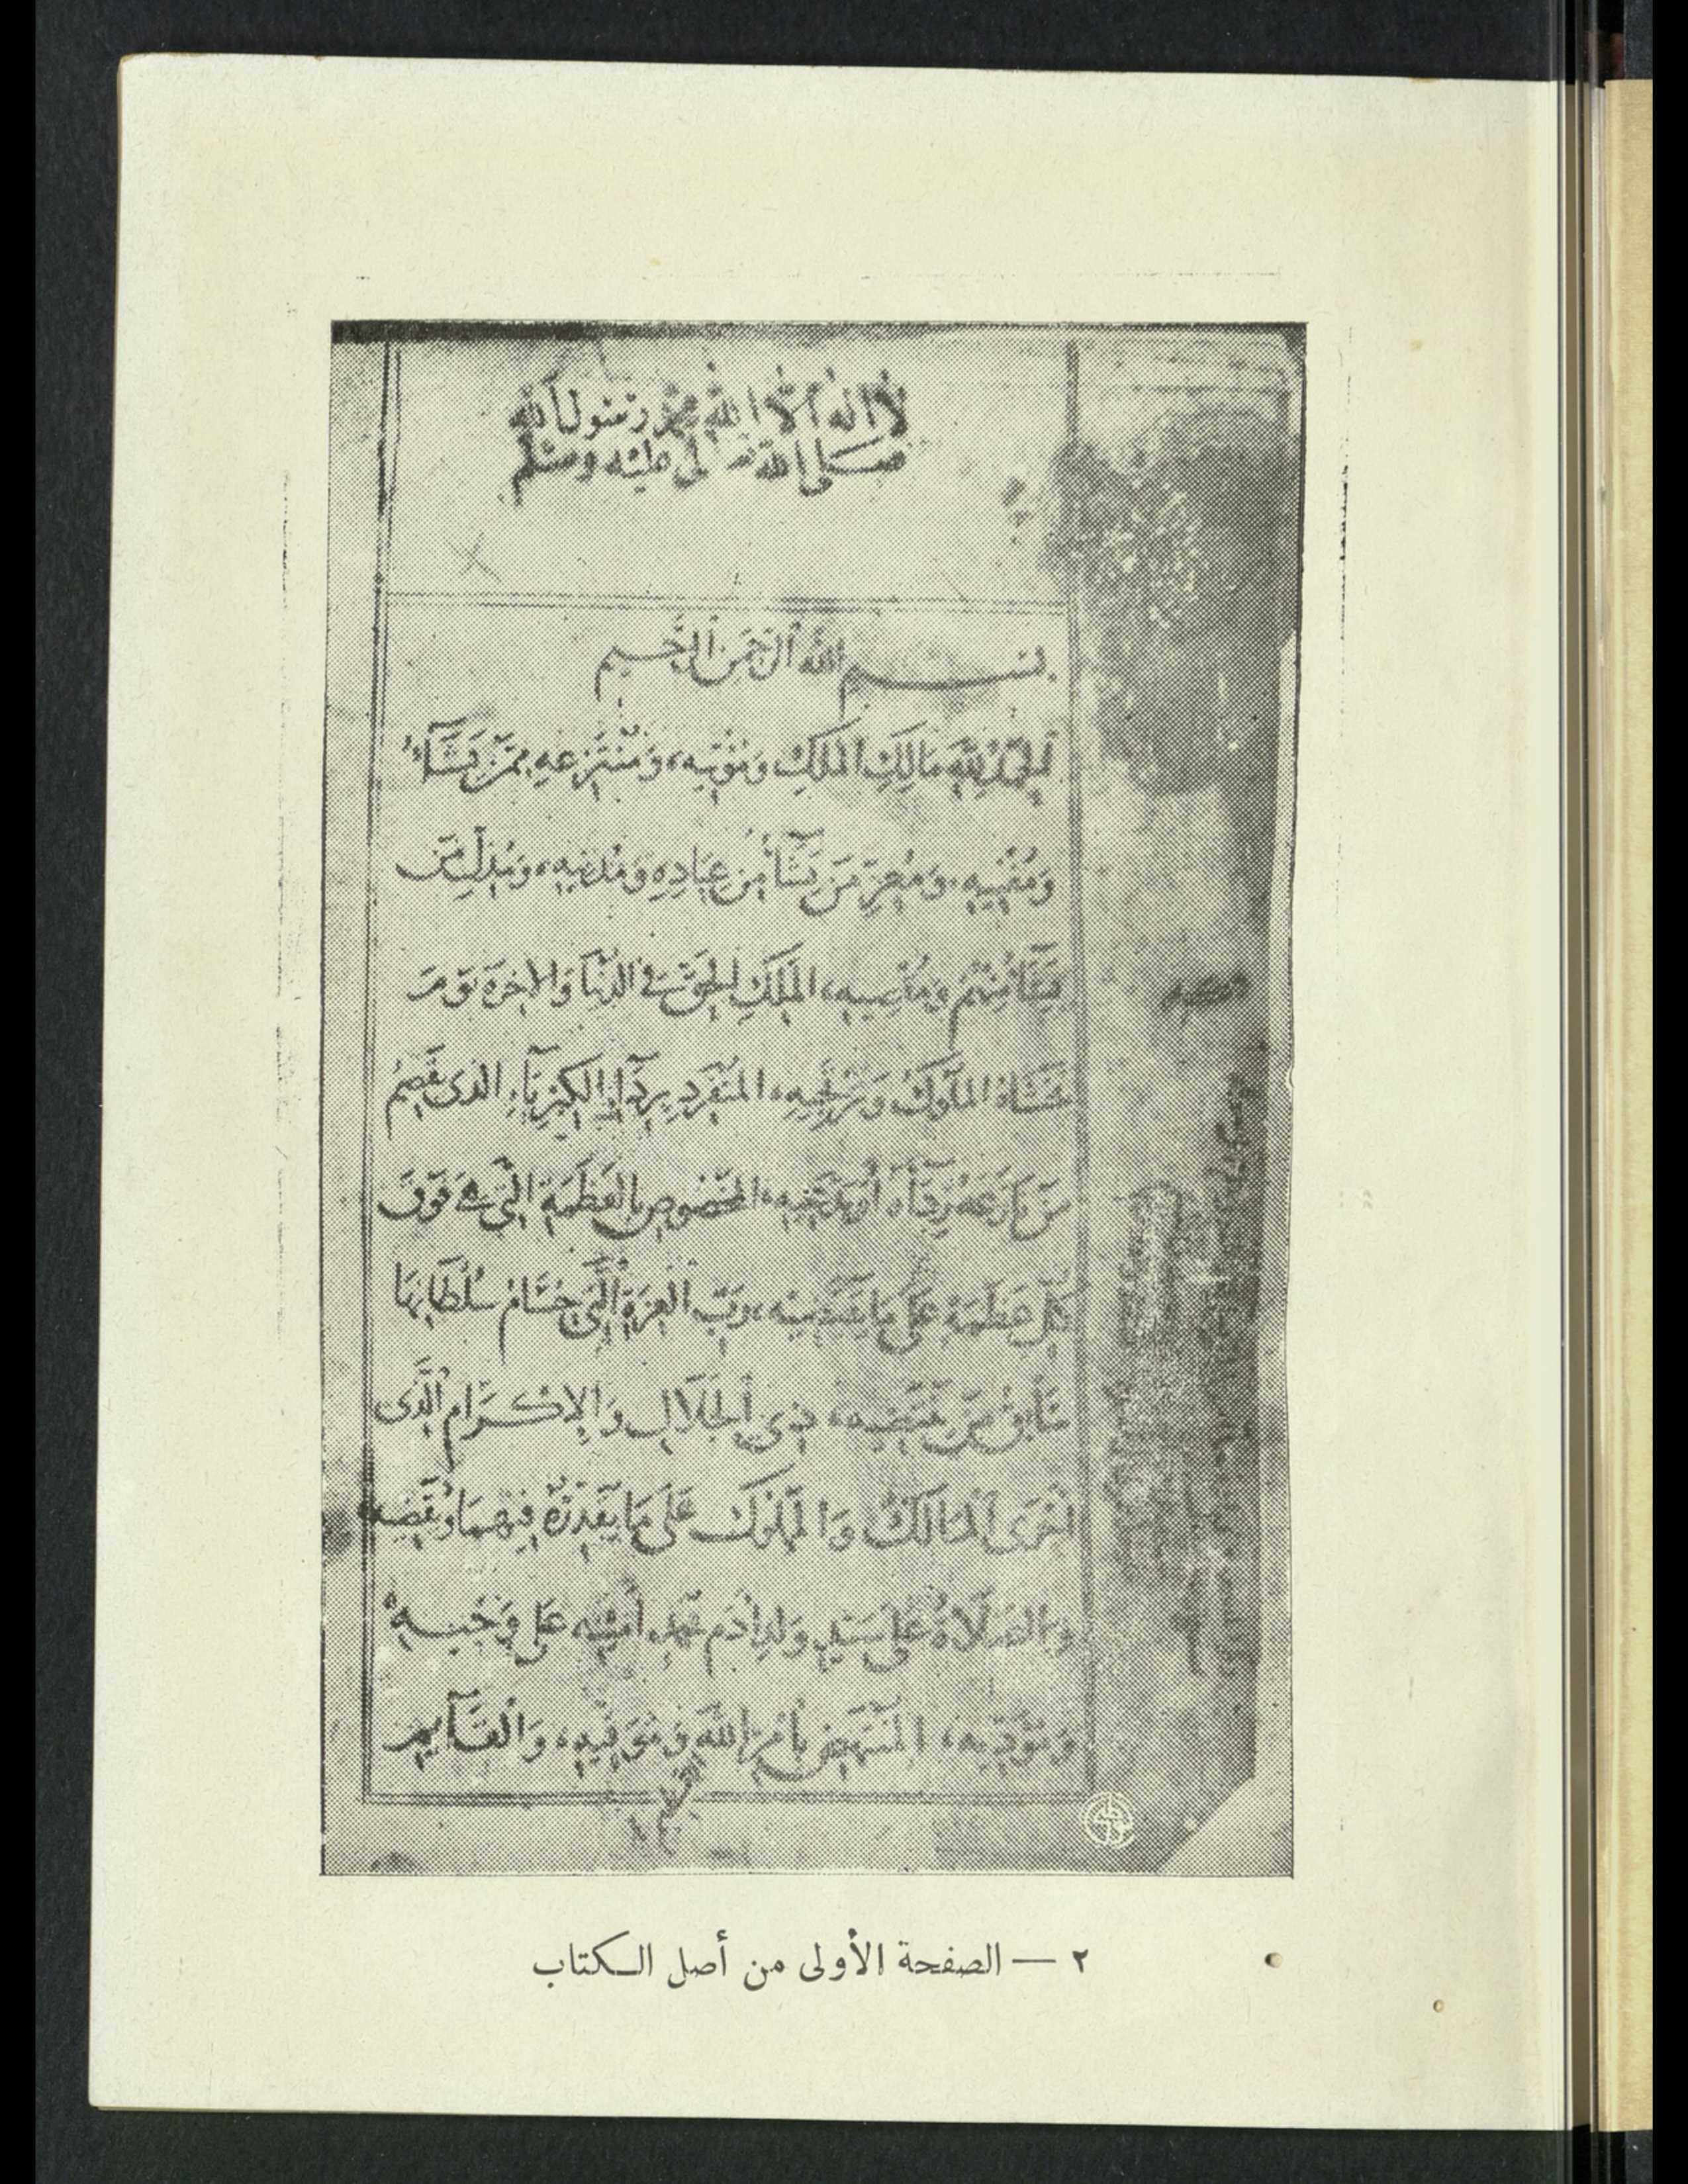 لا اله الا الله محمد رسول الله
صلى الله تعالى عليه وسلم
بسم الله الرحمن الرحيم
الحمد لله مالك الملك ومؤتيه، ومنتزعه ممن يشاء
ومعز من يشاء من عباده ومدنيه، ومذل من
يشاء منهم ومقصيه، الملك الحق في الدنيا والاخرة يوم
الملوك المتفرد برداء الكبرياء الذى يقصم
من نازعه رداه أو يدعيه، المخصوص بالعظمة التي هي فوق
كل عظمة على ما ورب العزة التي سلطانها
ذي الجلال والإكرام الذى
اخرى الممالك والملوك على ما يقدره فيهما ويقضيه
والصلاة على سيد ولد ادم محمد أمينه على وحيه
ومؤديه، المنتهض بأمر الله وموفيه، والقايم
٢ — الصفحة الأولى من أصل الكتاب